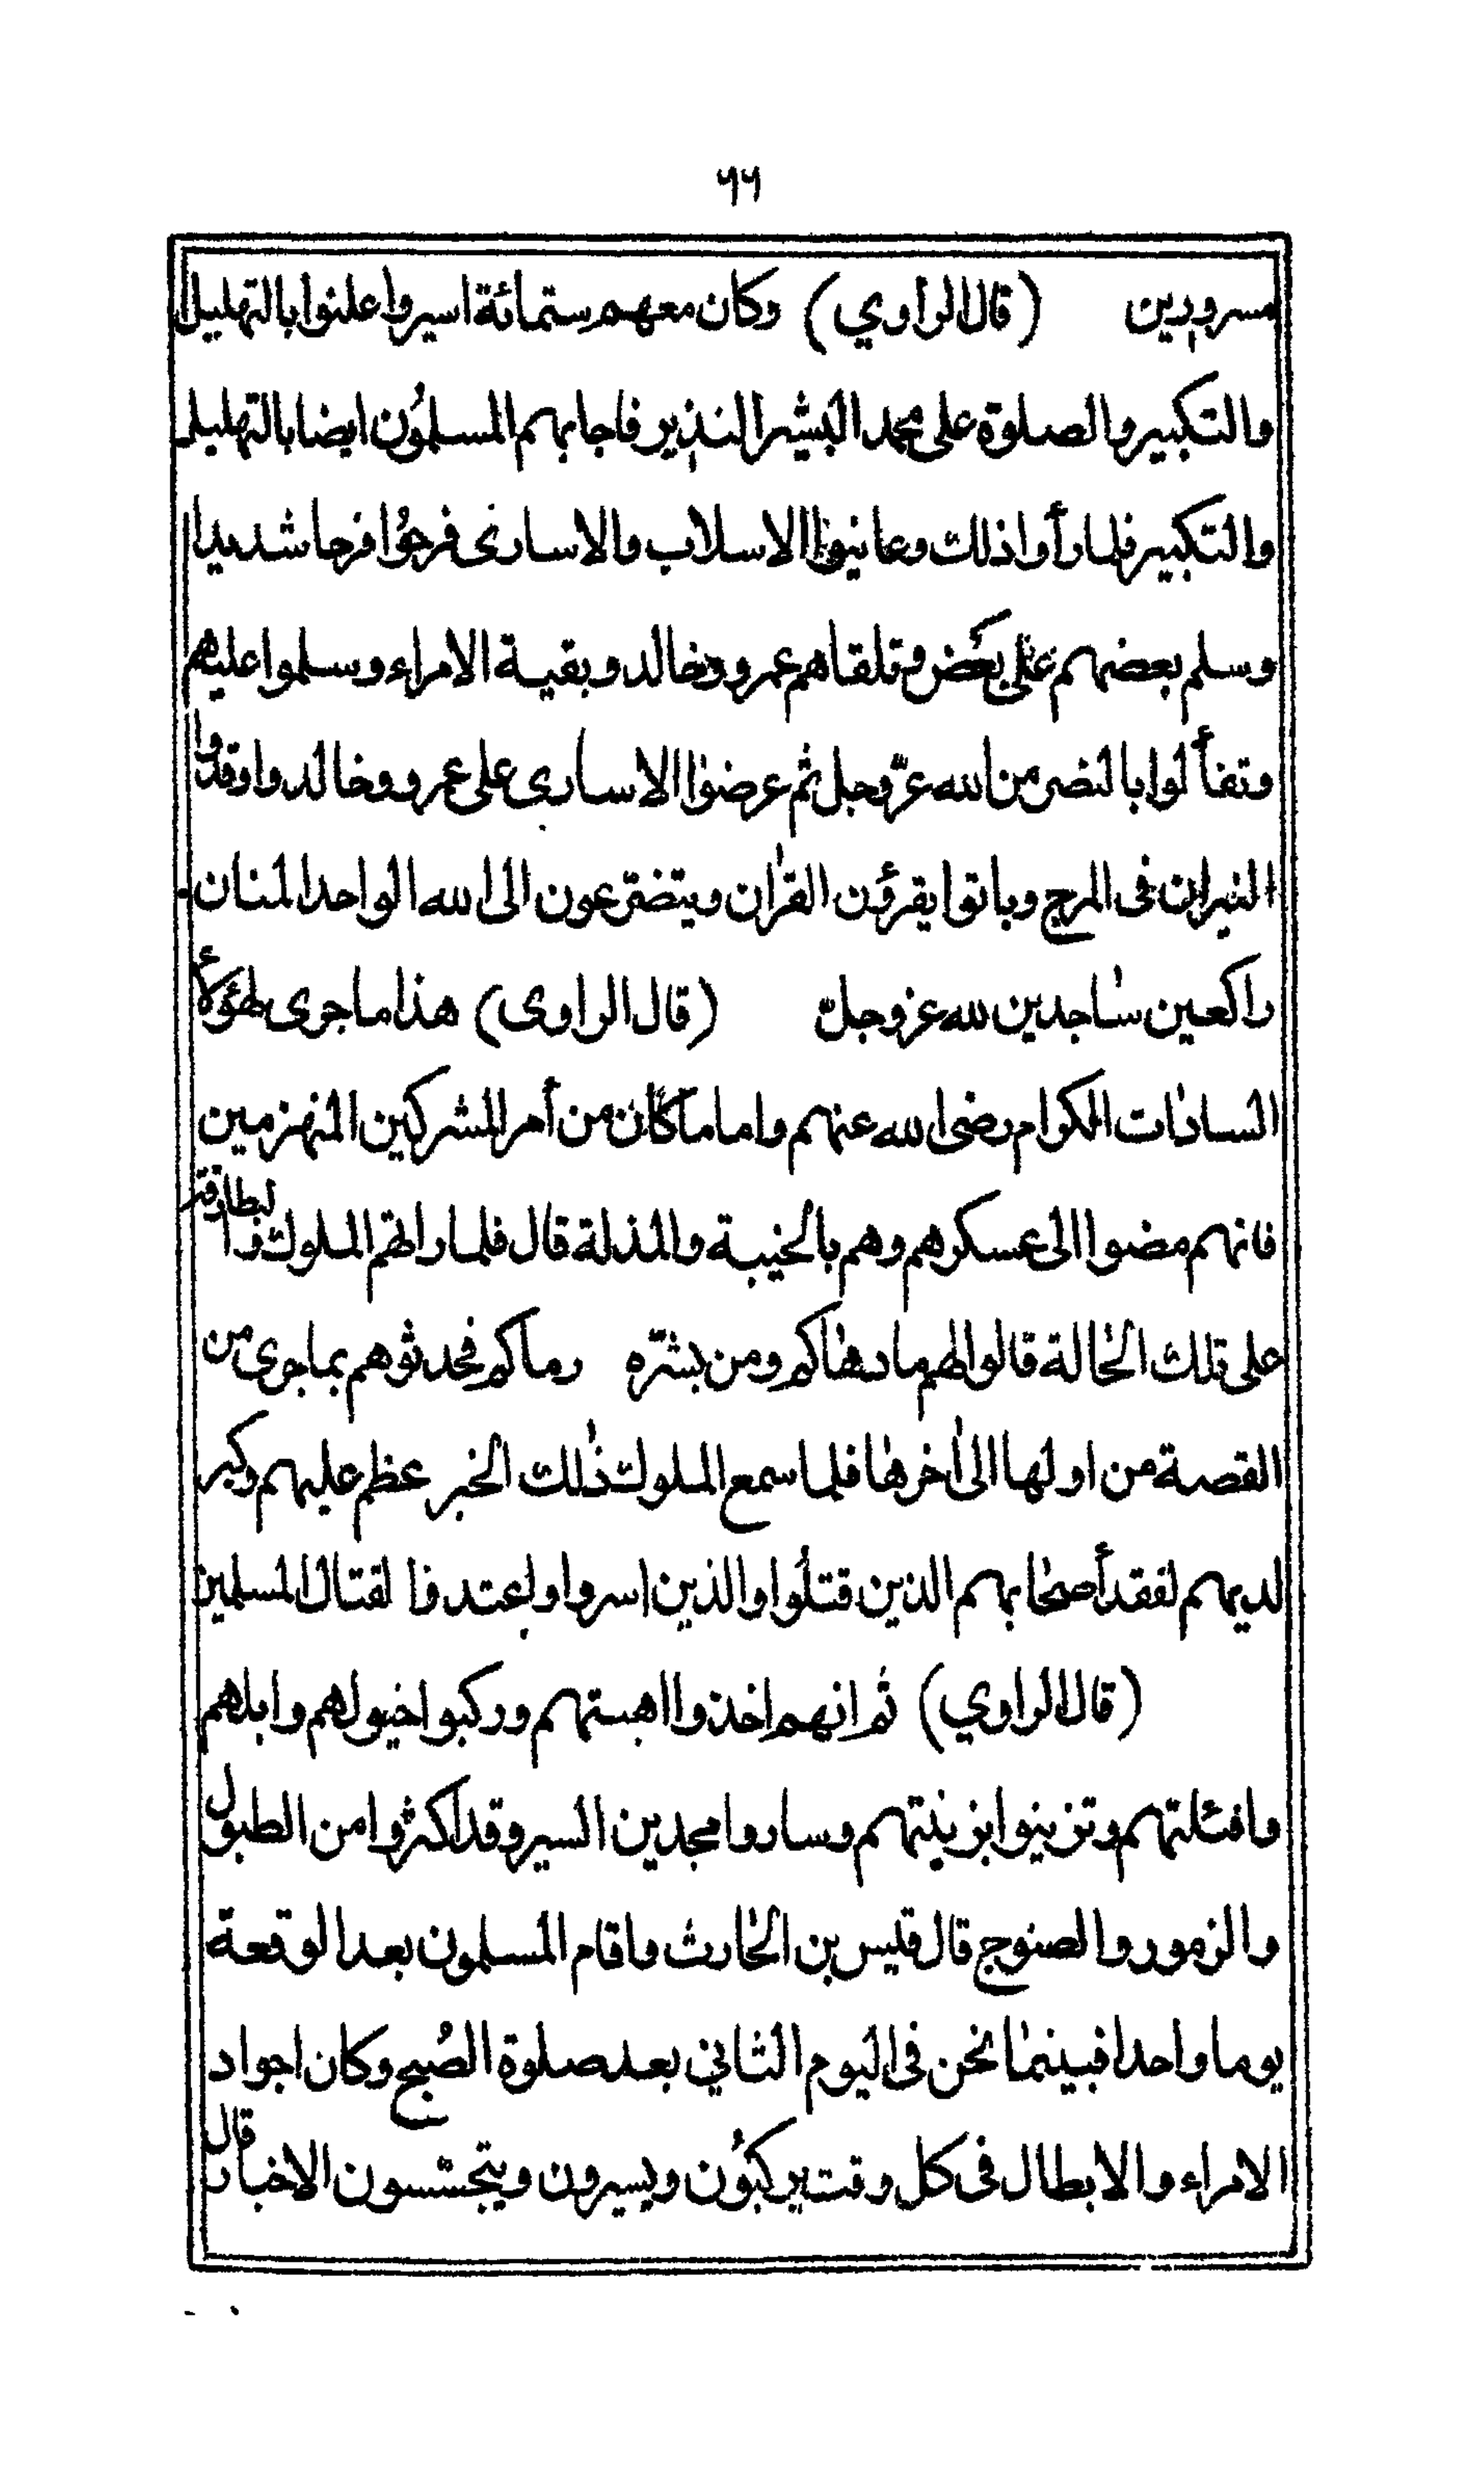 ٦٦
مسرورين (قال الراوي) وكان معهم ستمائة اسير واعلنوا بالتهليل
والتكبير والصلوة على محمد البشير النذير فاجابهم المسلمُون ايضا بالتهليل
والتكبير فلما رأوا ذلك وعاينوا الاسلاب والاسارى فرحُوا فرحا شديدا
وسلم بعضهم على بعض وتلقاهم عمرو وخالد وبقية الامراء وسلموا عليهم
وتفألوا بالنصر من الله عزّ وجل ثم عرضوا الاسارى على عمرو وخالد واوقدوا
النيران فى المرج وباتوا يقرؤن القرٰان ويتضرّعون الى الله الواحد المنان
راكعين ساجدين لله عز وجلّ (قال الراوى) هذا ما جرى لهؤلاء
السادات الكرام رضى الله عنهم واما ما كان من أمر المشركين المنهزمين
فانهم مضوا الى عسكرهم وهم بالخيبة والمذلة قال فلما راٰهم الملوك والبطارقة
على تلك الحالة قالوا لهم ما دهاكم ومن بشرّه رماكم فحدثوهم بما جرى من
القصة من اولها الى اٰخرها فلما سمع الملوك ذٰلك الخبر عظم عليهم وكبر
لديهم لفقد أصحابهم الذين قتلُوا والذين اسروا لقتال المسلمين
(قال الراوي) ثم انهم اخذوا اهبتهم وركبوا خيولهم وابلهم
وافئلتهم وتزينوا بزينتهم وساروا مجدين السير وقد اكثروا من الطبول
والزمور والصنوج قال قيس بن الحارث واقام المسلمون بعد الوقعة
يوما واحدا فبينما نحن فى اليوم الثاني بعد صلوة الصُبح وكان اجواد
الامراء والابطال فى كل وقت يركبُون ويسيرون ويتجسّسون الاخبار قال